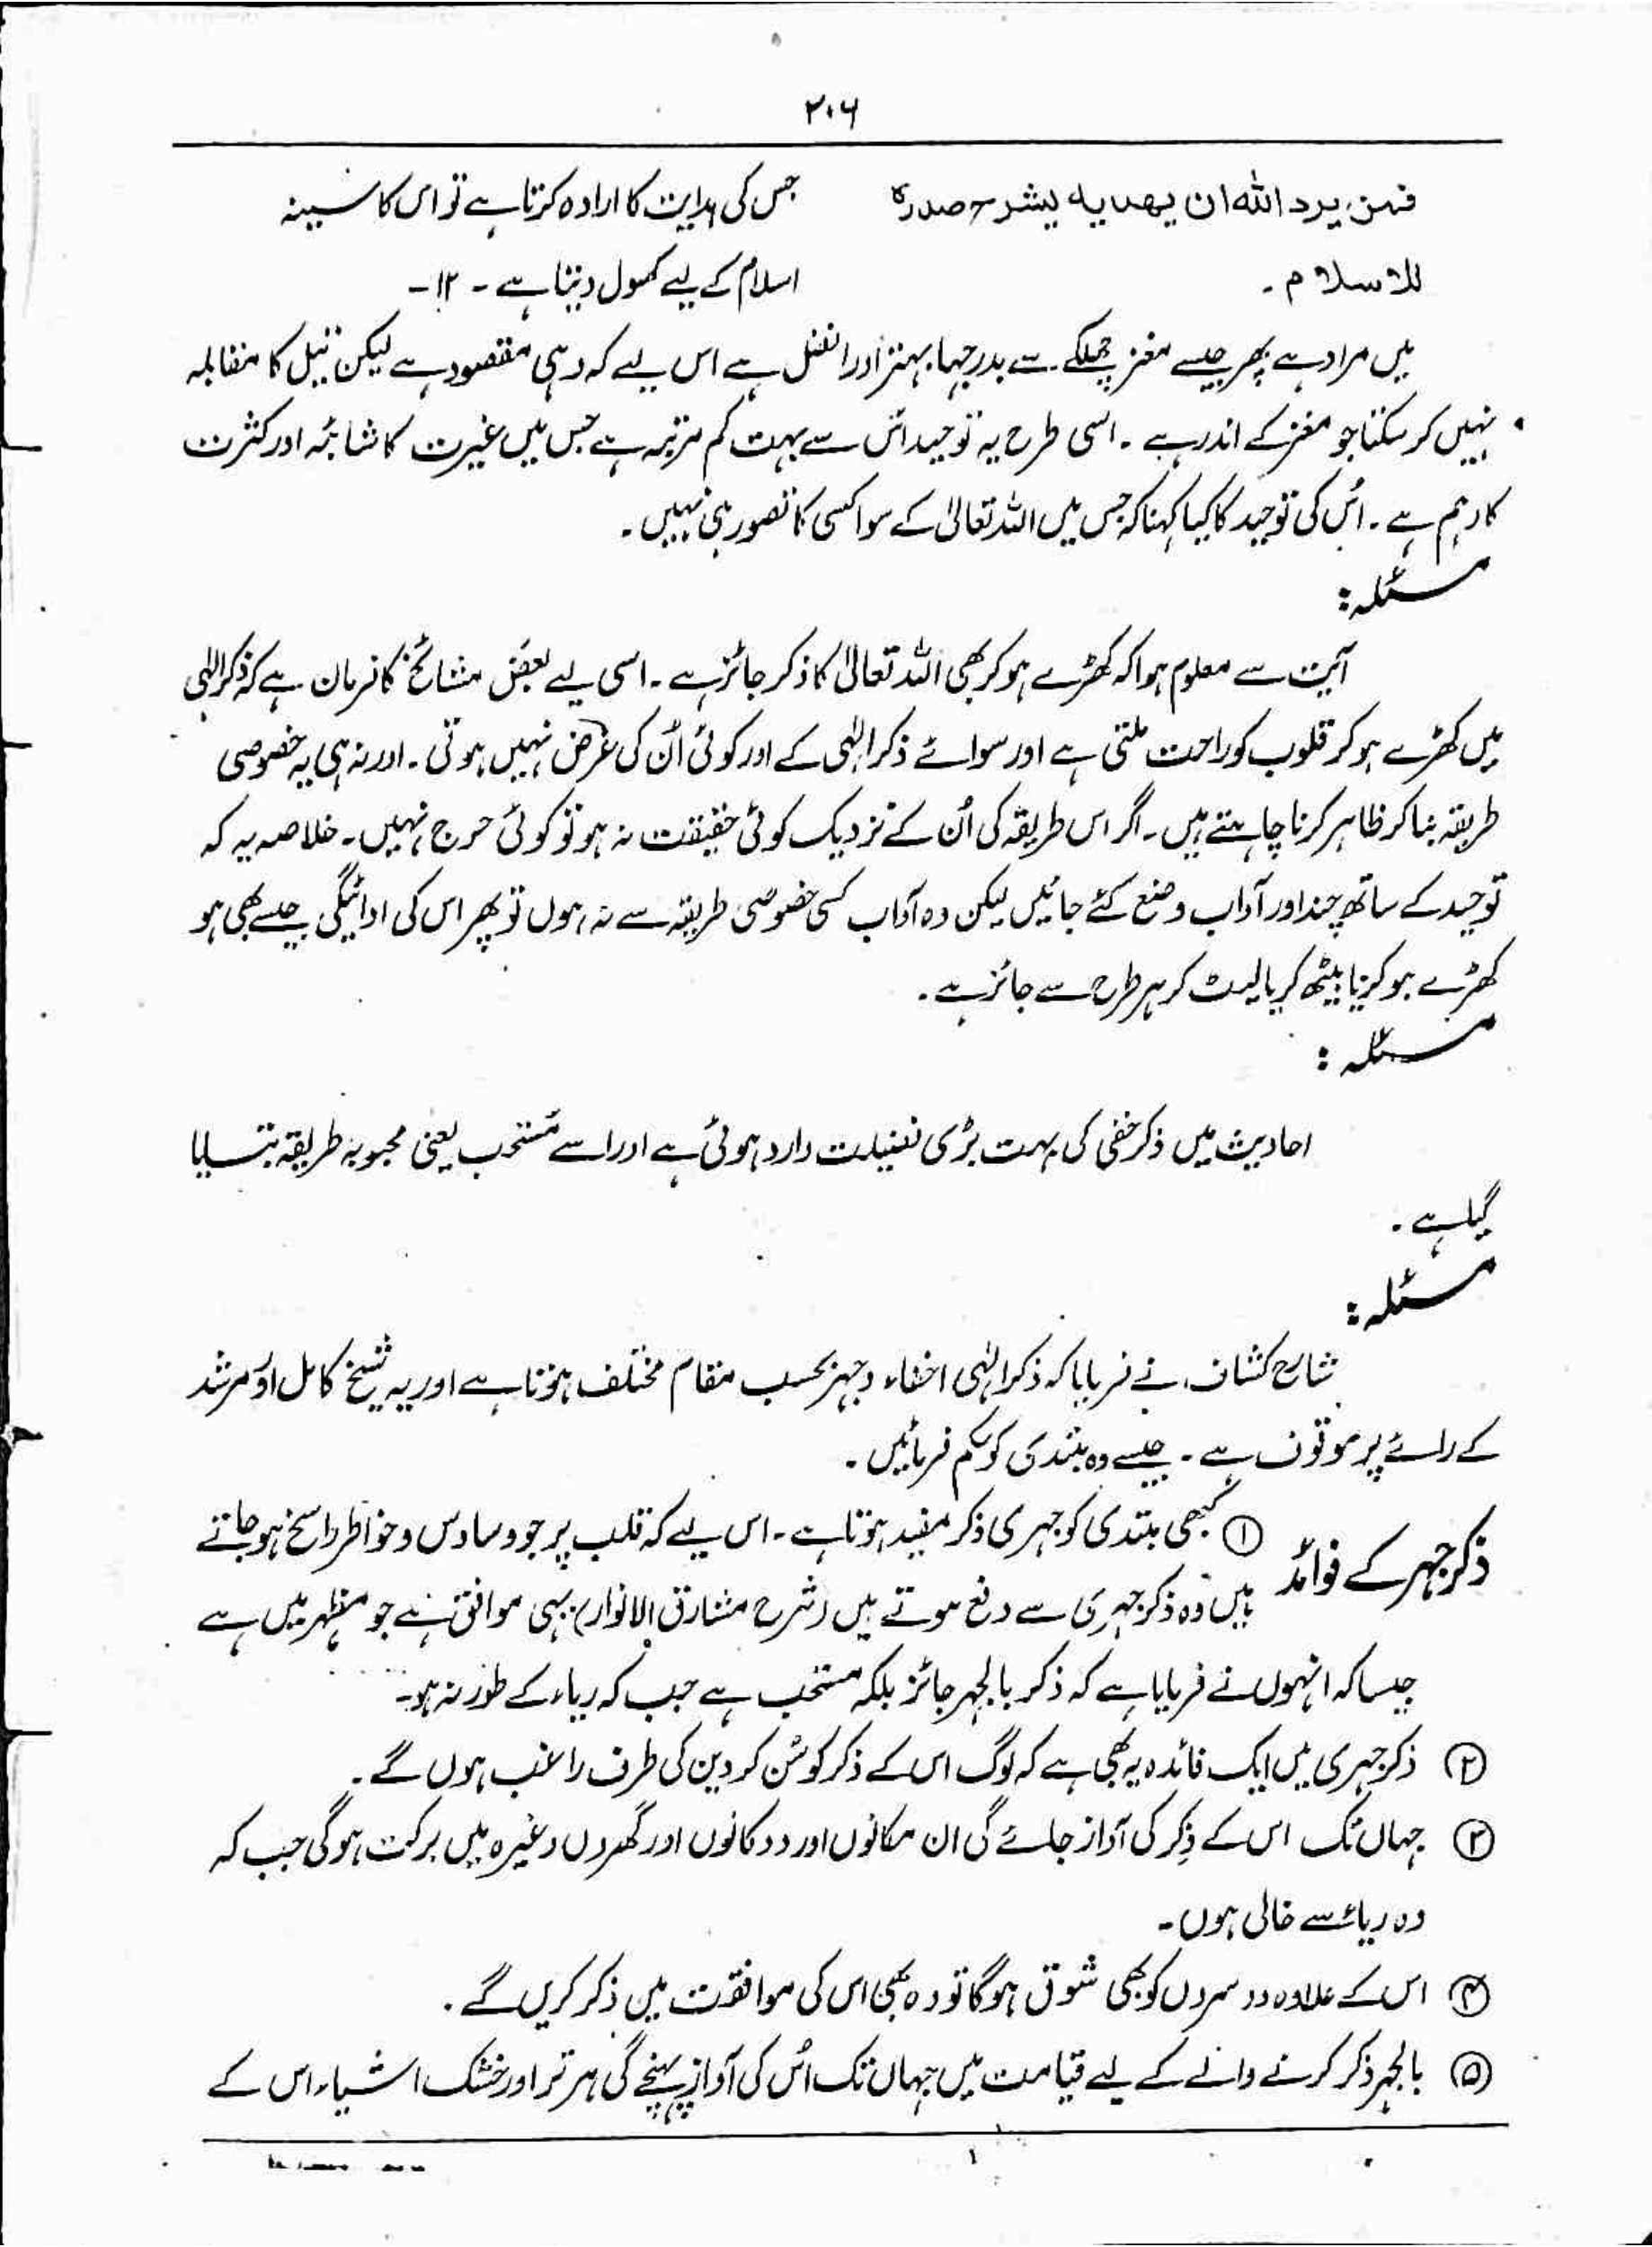 ۲۰۶
فمن یرد اللہ ان یھدیہ یشرح صدرہ
للاسلام ۔
جس کی ہدایت کا ارادہ کرتا ہے تو اس کا سینہ
اسلام کے لیے کھول دیتا ہے ۔ ۱۲ ۔
میں مراد ہے پھر جیسے مغز چھلکے سے بدرجہا بہتر اور افضل ہے اس لیے کہ وہی مقصود ہے لیکن تیل کا مقابلہ
نہیں کر سکتا جو مغز کے اندر ہے ۔ اسی طرح یہ توحید اُس سے بہت کم مرتبہ ہے جس میں غیرت کا شائبہ اور کثرت
کا وہم ہے ۔ اُس کی توحید کا کیا کہنا کہ جس میں اللہ تعالیٰ کے سوا کسی کا تصور ہی نہیں ۔
مسئلہ :
آیت سے معلوم ہوا کہ کھڑے ہو کر بھی اللہ تعالیٰ کا ذکر جائز ہے ۔ اسی لیے بعض مشائخ کا فرمان ہے کہ ذکر الٰہی
میں کھڑے ہو کر قلوب کو راحت ملتی ہے اور سوائے ذکر الٰہی کے اور کوئی اُن کی غرض نہیں ہوتی ۔ اور نہ ہی یہ خصوصی
طریقہ بنا کر ظاہر کرنا چاہتے ہیں ۔ اگر اس طریقہ کی اُن کے نزدیک کوئی حقیقت نہ ہو تو کوئی حرج نہیں ۔ خلاصہ یہ کہ
توحید کے ساتھ چند اور آداب وضع کئے جائیں لیکن وہ آداب کسی خصوصی طریقہ سے نہ ہوں تو پھر اس کی ادائیگی جیسے بھی ہو
کھڑے ہو کر یا بیٹھ کر یا لیٹ کر ہر طرح سے جائز ہے ۔
مسئلہ :
احادیث میں ذکر خفی کی بہت بڑی فضیلت وارد ہوئی ہے اور اسے مُستحب یعنی محبوبہ طریقہ بتلایا
گیا ہے ۔
مسئلہ :
شارح کشاف نے فرمایا کہ ذکر الٰہی اخفاء و جہر بحسب مقام مختلف ہوتا ہے اور یہ شیخ کامل اور مرشد
کے رائے پر موقوف ہے ۔ جیسے وہ مبتدی کو حکم فرمائیں ۔
ذکر جہر کے فوائد ① کبھی مبتدی کو جہری ذکر مفید ہوتا ہے ۔ اس لیے کہ قلب پر جو وساوس و خواطر راسخ ہو جاتے
ہیں وہ ذکر جہری سے دفع ہوتے ہیں (شرح مشارق الانوار) یہی موافق ہے جو مظہر میں ہے
جیسا کہ انہوں نے فرمایا ہے کہ ذکر بالجہر جائز بلکہ مستحب ہے جب کہ ریاء کے طور نہ ہو ۔
② ذکر جہری میں ایک فائدہ یہ بھی ہے کہ لوگ اس کے ذکر کو سُن کر دین کی طرف راغب ہوں گے ۔
③ جہاں تک اس کے ذِکر کی آواز جائے گی ان مکانوں اور دوکانوں اور گھروں وغیرہ میں برکت ہوگی جب کہ
وہ ریاء سے خالی ہوں ۔
④ اس کے علاوہ دوسروں کو بھی شوق ہوگا تو وہ بھی اس کی موافقت میں ذکر کریں گے ۔
⑤ بالجہر ذکر کرنے والے کے لیے قیامت میں جہاں تک اُس کی آواز پہنچے گی ہر تر اور خشک اشیاء اس کے